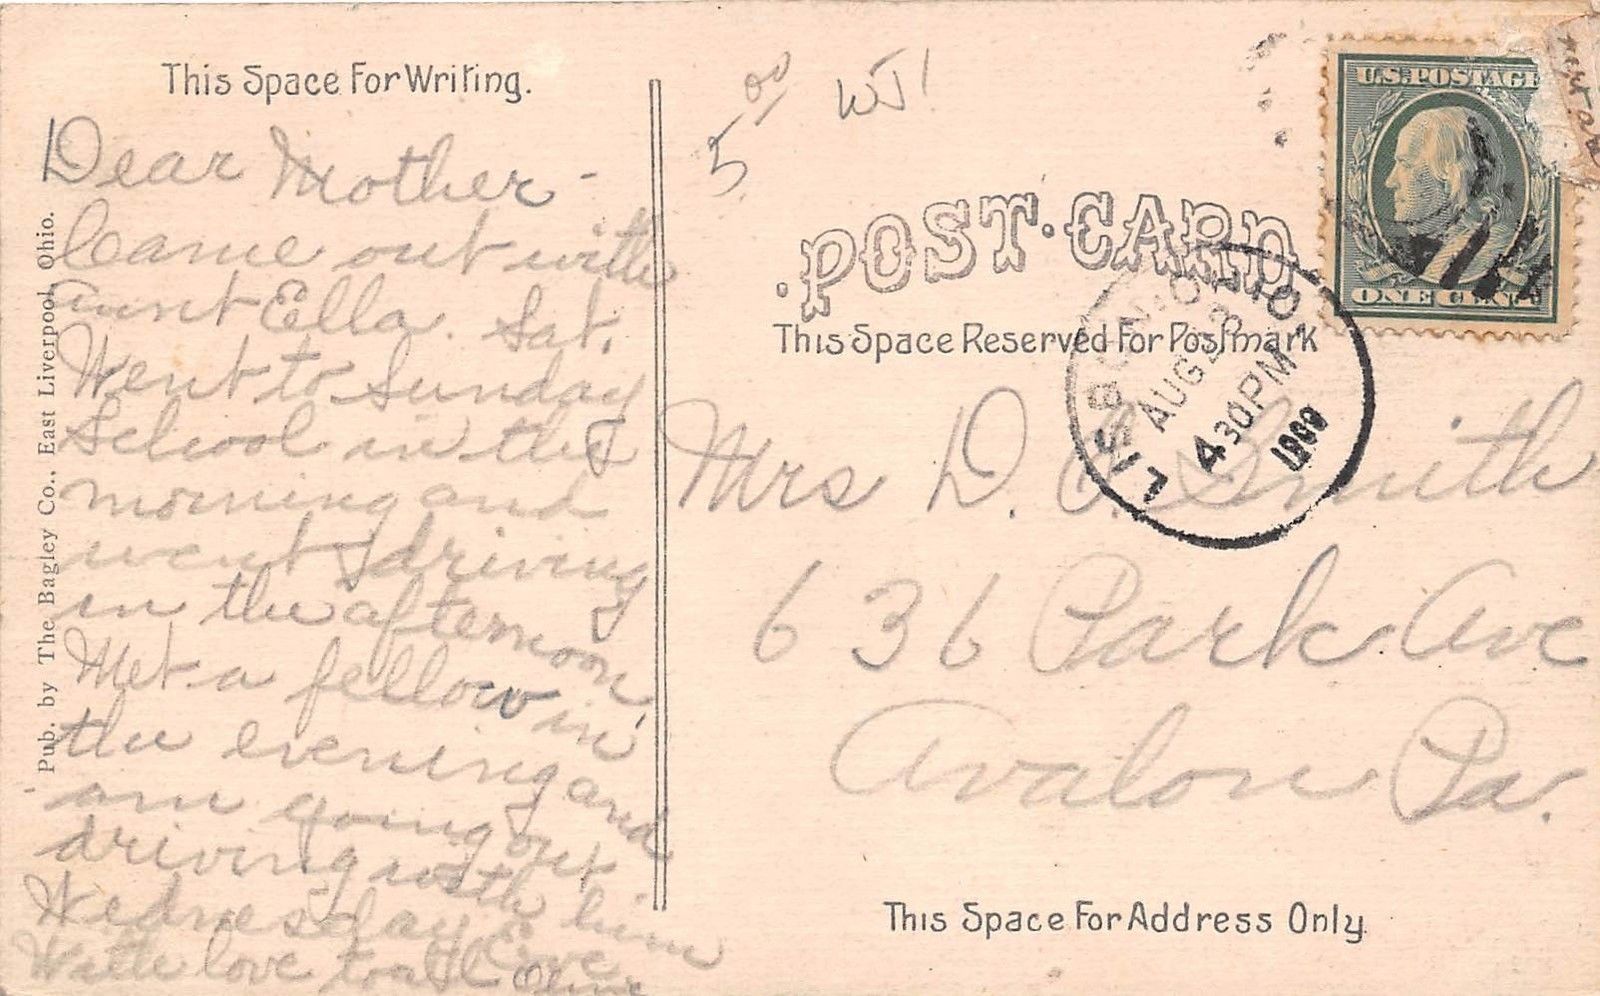 This Space For Writing.
Dear Mother -
Came out with
Aunt Ella. Sat.
Went to Sunday
School in the
morning and
went driving
in the afternoon,
Met a fellow in
the evening and
am going out
driving with him
Wednesday Eve
With love to all Olive
Pub. by The Bagley Co., East Liverpool, Ohio.
5 00
WJ!
U.S. POSTAGE
ONE CENT
POST CARD
This Space Reserved For Postmark
LISBON, OHIO.
AUG 23
4 30 PM
1909
Mrs D. C. Smith
636 Park Ave
Avalon Pa.
This Space For Address Only.